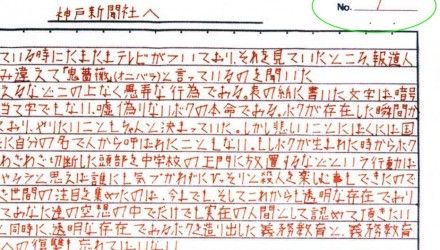 神戸新聞社へ
No. 1
ている時にたまたまテレビがついており、それを見ていたところ、報道人
み違えて「鬼薔薇」(オニバラ)と言っているのを聞いた
えるなどこの上なく愚弄な行為である。表の紙に書いた文字は、暗号
当て字でもない。嘘偽りないボクの本命である。ボクが存在した瞬間か
おり、やりたいこともちゃんと決まっていた。しかし悲しいことにぼくには国
に自分の名で人から呼ばれたこともない。もしボクが生まれた時からボク
わざわざ切断した頭部を中学校の正門に放置するなどという行動は
うと思えば誰にも気づかれずにひっそりと殺人を楽しむ事もできたので
世間の注目を集めたのは、今までも、そしてこれからも透明な存在であり
てあなた達の空想の中でだけでも実在の人間として認めて頂きたい
同時に、透明な存在であるボクを造り出した義務教育と、義務教育
への復讐も忘れてはいない